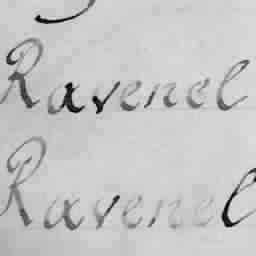 Ravenel
Ravenel